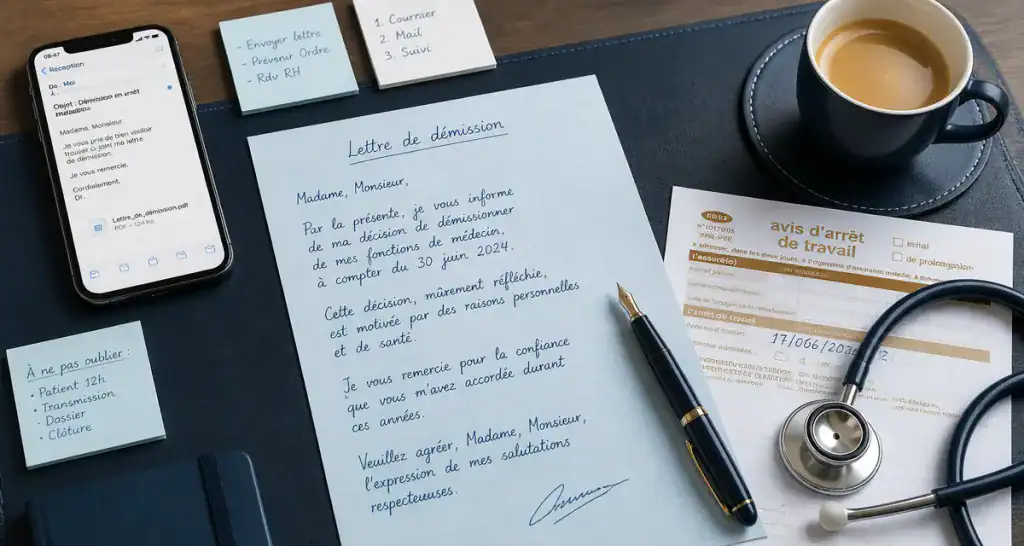 08:47
Réception
Objet : Démission en arrêt
Madame, Monsieur,
Je vous prie de bien vouloir
trouver ci-joint ma lettre
de démission.
Je vous remercie.
Cordialement,
Dr.
Lettre_de_démission.pdf
- Envoyer lettre
- Prévenir Ordre
- Rdv RH
1. Courrier
2. Mail
3. Suivi
Lettre de démission
Madame, Monsieur,
Par la présente, je vous informe
de ma décision de démissionner
de mes fonctions de médecin,
à compter du 30 juin 2024.
Cette décision, mûrement réfléchie,
est motivée par des raisons personnelles
et de santé.
Je vous remercie pour la confiance
que vous m'avez accordée durant
ces années.
Veuillez agréer, Madame, Monsieur,
l'expression de mes salutations
respectueuses.
À ne pas oublier :
• Patient 12h
• Transmission
- Dossier
• Clôture
avis d'arrêt
de travail
initial
de prolongation
l'assuré(e)
l'arrêt de travail